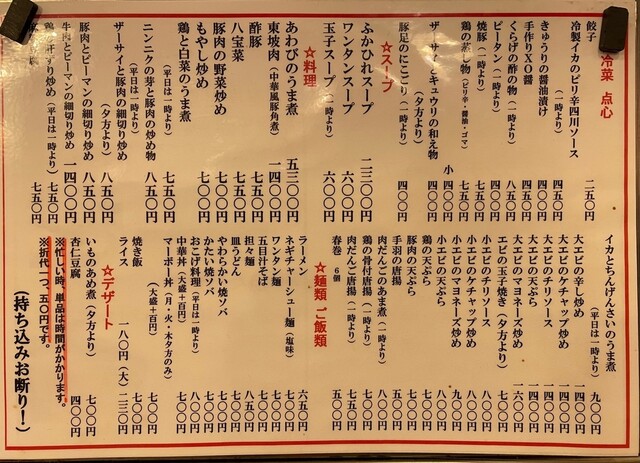 冷菜 点心
餃子 二五〇円
冷製イカのピリ辛四川ソース
(一時より) 四五〇円
きゅうりの醤油漬け 四〇〇円
手作りXO醤 四〇〇円
くらげの酢の物(一時より) 八五〇円
ピータン(一時より) 四〇〇円
焼豚(一時より) 七五〇円
鶏の蒸し物(ピリ辛・醤油・ゴマ) 七五〇円
小 四〇〇円
ザーサイとキュウリの和え物
(夕方より) 四〇〇円
豚足のにこごり(一時より) 四〇〇円
☆スープ
ふかひれスープ 二三〇〇円
ワンタンスープ 六〇〇円
玉子スープ(一時より) 六〇〇円
☆料理
あわびのうま煮 五三〇〇円
東坡肉(中華風豚角煮) 一四〇〇円
酢豚 七五〇円
八宝菜 七五〇円
豚肉の野菜炒め 七〇〇円
もやし炒め 七〇〇円
鶏と白菜のうま煮
(平日は一時より) 七五〇円
ニンニクの芽と豚肉の炒め物
(平日は一時より) 八五〇円
ザーサイと豚肉の細切り炒め
(夕方より) 八五〇円
豚肉とピーマンの細切り炒め 八五〇円
牛肉とピーマンの細切り炒め 一四〇〇円
炒め(平日は一時より) 七五〇円
七五〇円
イカとちんげんさいのうま煮
(平日は一時より) 九〇〇円
大エビの辛し炒め 一四〇〇円
大エビのケチャップ炒め 一四〇〇円
大エビのチリソース 一四〇〇円
大エビの天ぷら 一四〇〇円
大エビのマヨネーズ炒め 一六〇〇円
エビの玉子焼き(夕方より) 七〇〇円
小エビのチリソース 八〇〇円
小エビのケチャップ炒め 八〇〇円
小エビのマヨネーズ炒め 九〇〇円
小エビの天ぷら 八〇〇円
鶏の天ぷら 七〇〇円
豚肉の天ぷら 七〇〇円
手羽の唐揚 七〇〇円
肉だんごのあま煮(一時より) 八〇〇円
鶏の骨付唐揚(一時より) 七〇〇円
肉だんご唐揚(一時より) 七五〇円
春巻 6個 五五〇円
☆麺類 ご飯類
ラーメン 六五〇円
ネギチャーシュー麺(塩味) 八〇〇円
ワンタン麺 七〇〇円
五目汁そば 七〇〇円
担々麺 八五〇円
皿うどん 七〇〇円
やわらかい焼ソバ 七〇〇円
かたい焼ソバ 七〇〇円
おこげ料理(平日は一時より) 八〇〇円
中華丼(大盛+百円) 七〇〇円
マーボー丼(月・火・木夕方のみ)
(大盛+百円) 七〇〇円
焼き飯 七〇〇円
ライス 一八〇円(大)二三〇円
☆デザート
いものあめ煮(夕方より) 七〇〇円
杏仁豆腐 四〇〇円
※忙しい時、単品は時間がかかります。
※折代一つ、五〇円です。
(持ち込みお断り!)